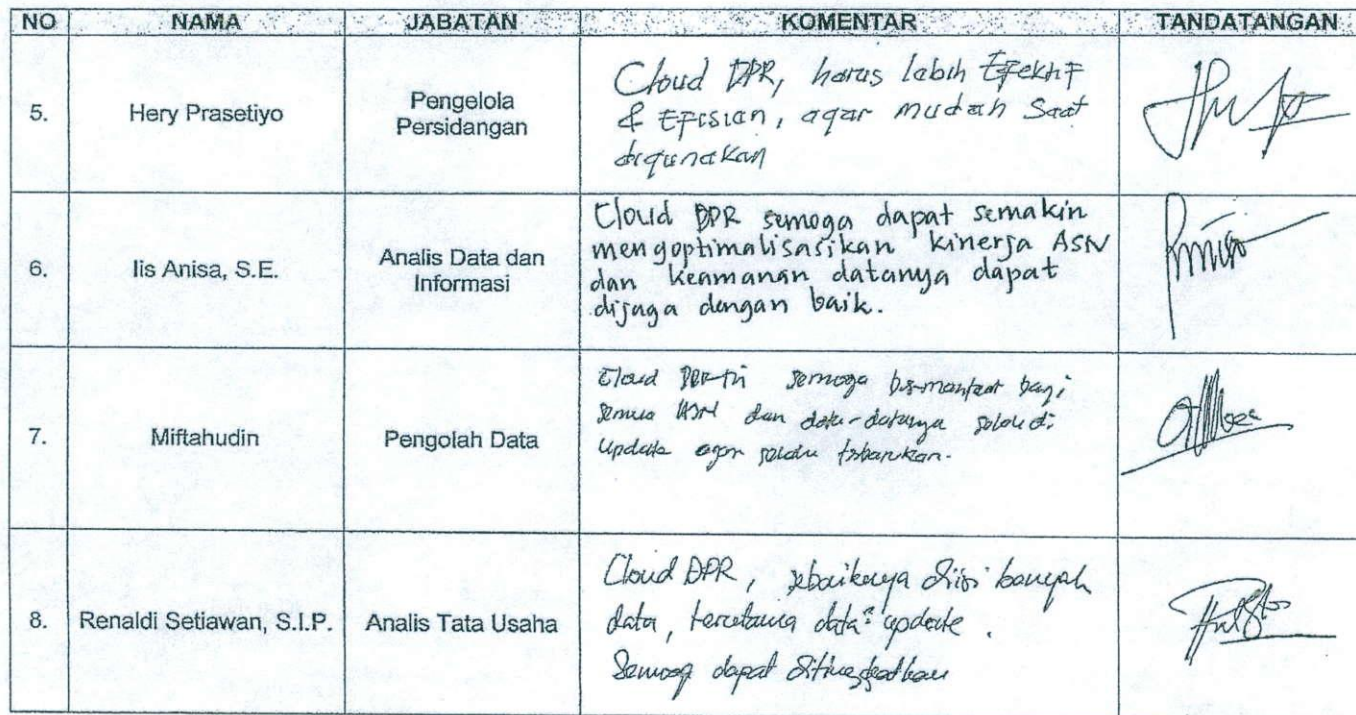 NO NAMA JABATAN KOMENTAR TANDATANGAN
5. Hery Prasetiyo Pengelola Persidangan
Cloud DPR, harus labih Efektif
& Efisian, agar mudah Saat
digunakan
6. Iis Anisa, S.E. Analis Data dan Informasi
Cloud DPR semoga dapat semakin
mengoptimalisasikan kinerja ASN
dan keamanan datanya dapat
dijaga dengan baik.
7. Miftahudin Pengolah Data
Cloud semoga bermanfaat bagi
semua ASN dan data-datanya selalu di
update agar selalu terbarukan.
8. Renaldi Setiawan, S.I.P. Analis Tata Usaha
Cloud DPR, sebaiknya diisi banyak
data, terutama data² update.
Semoga dapat ditingkatkan